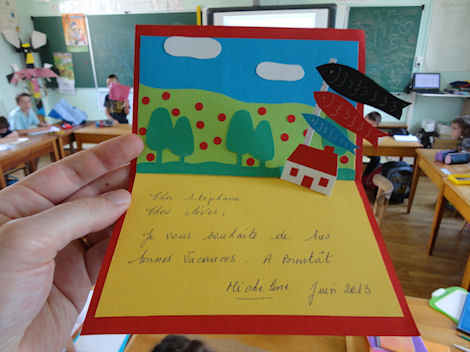 Cher Stéphane
Chers élèves,
Je vous souhaite de très
bonnes Vacances. A Bientôt
Micheline Juin 2013